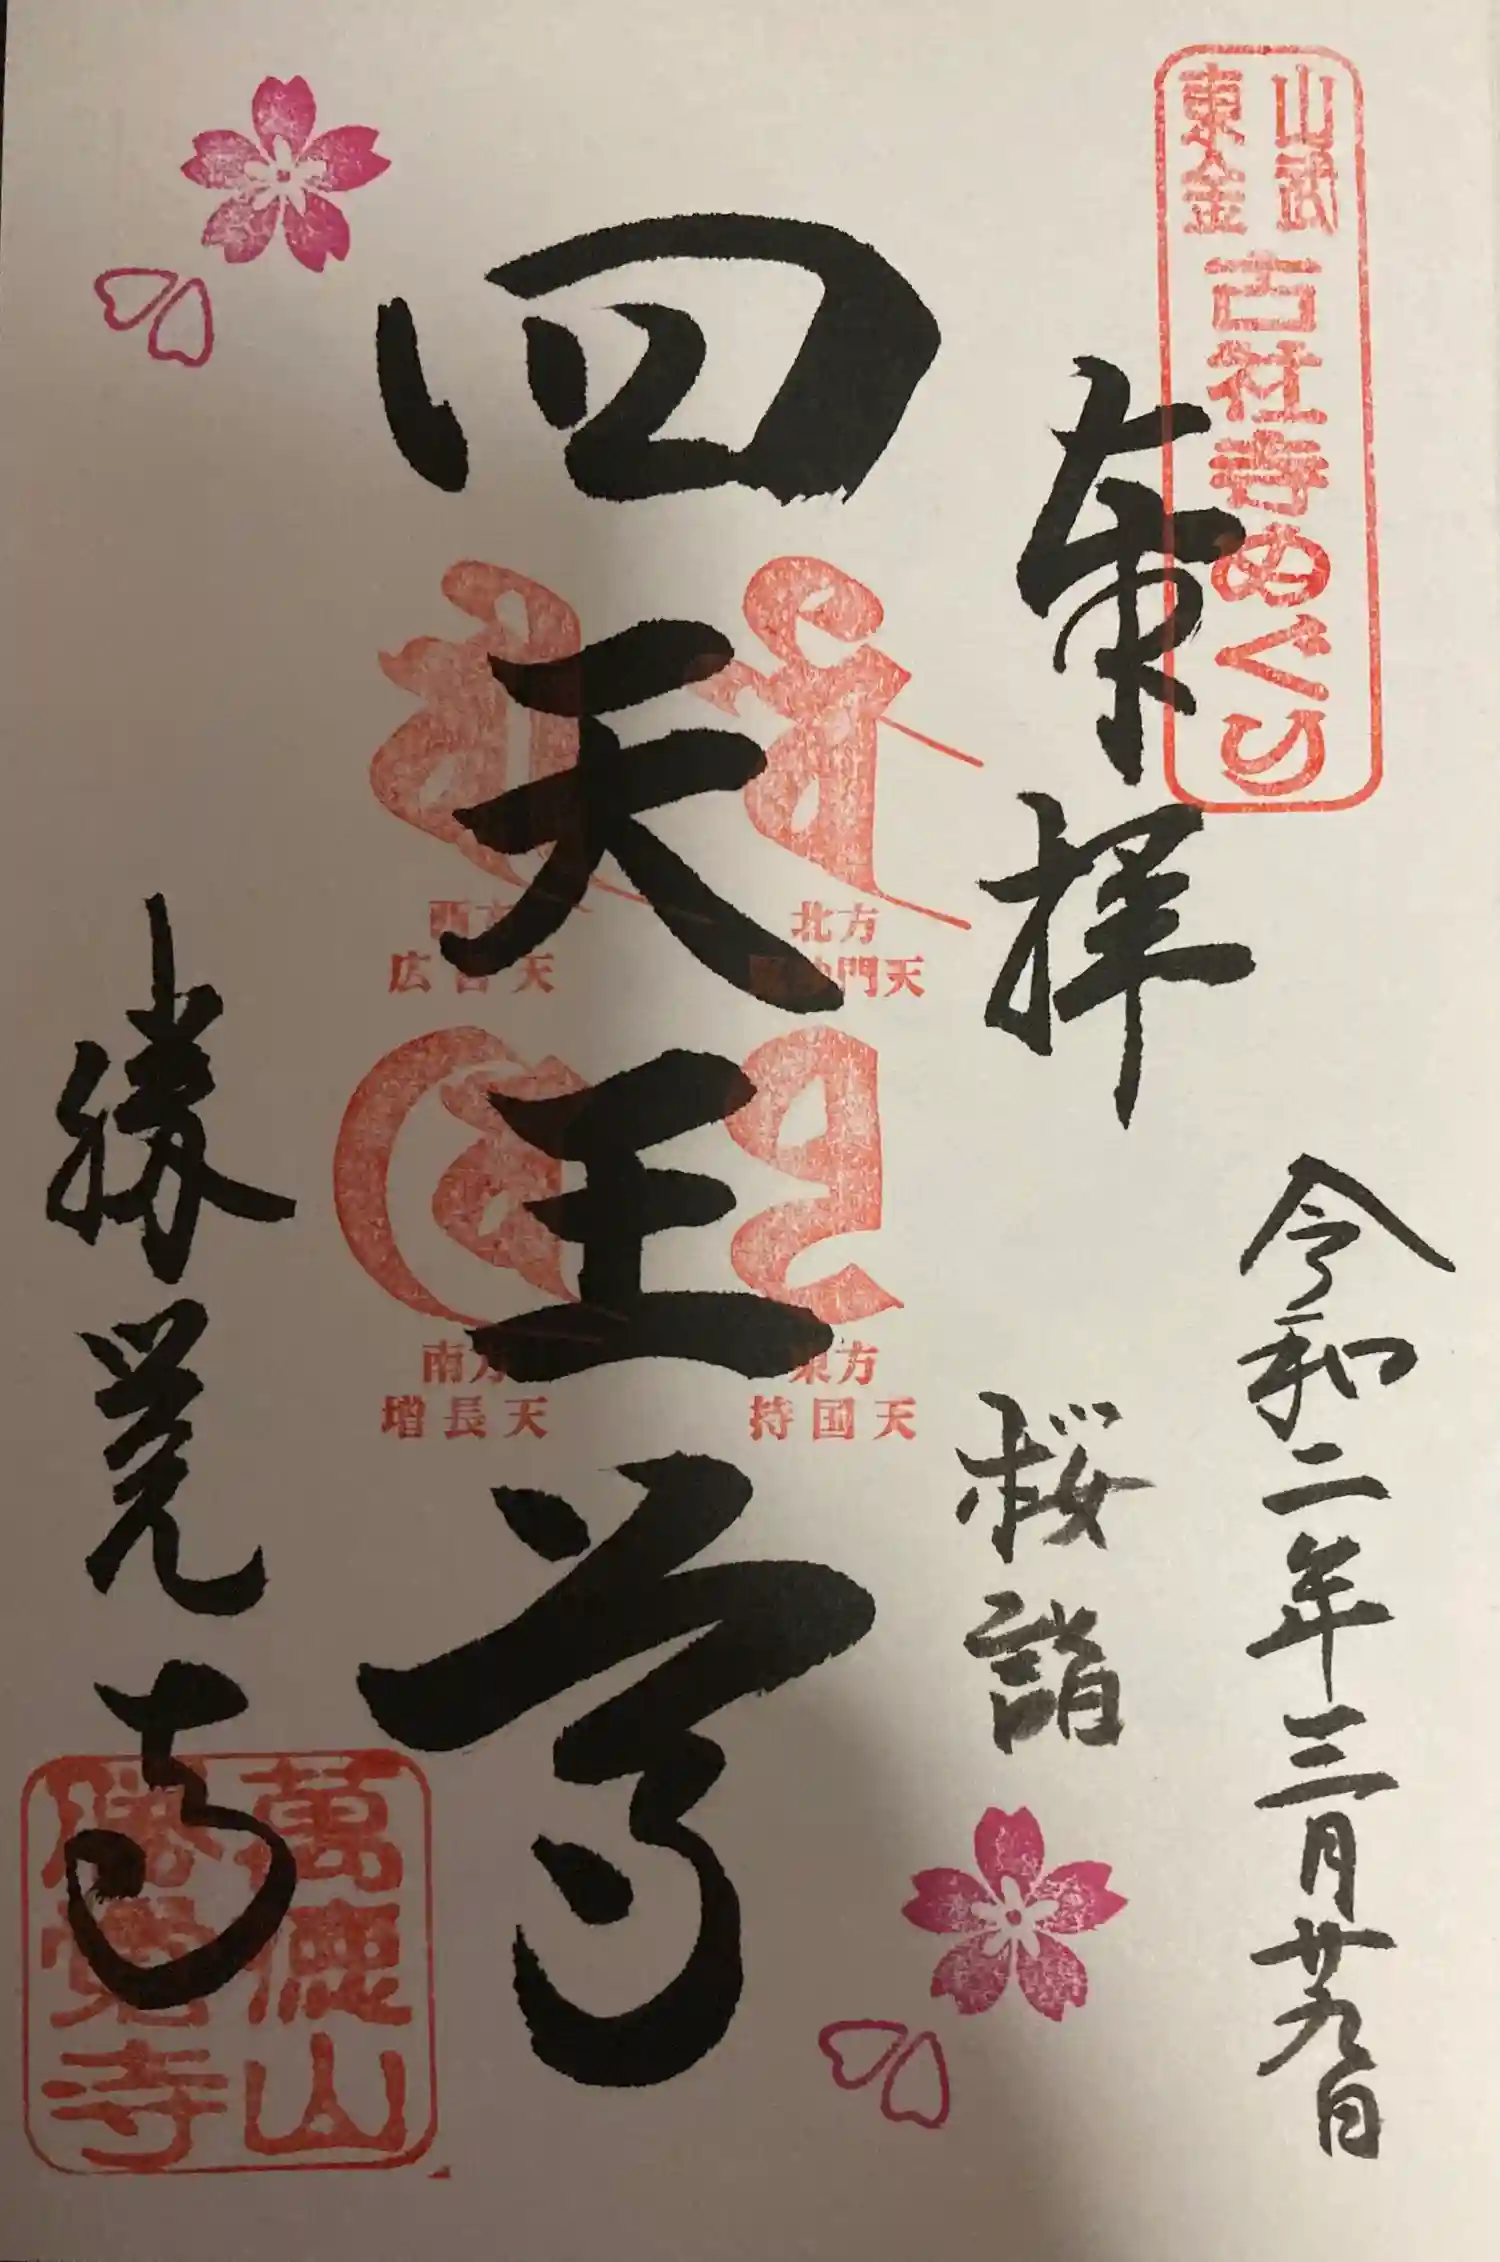 山武
東金
古社寺めぐり
奉拝
令和二年三月廿九日
桜詣
四天王尊
北方
毘沙門天
西方
広目天
東方
持国天
南方
増長天
勝覚寺
萬德山
勝覺寺